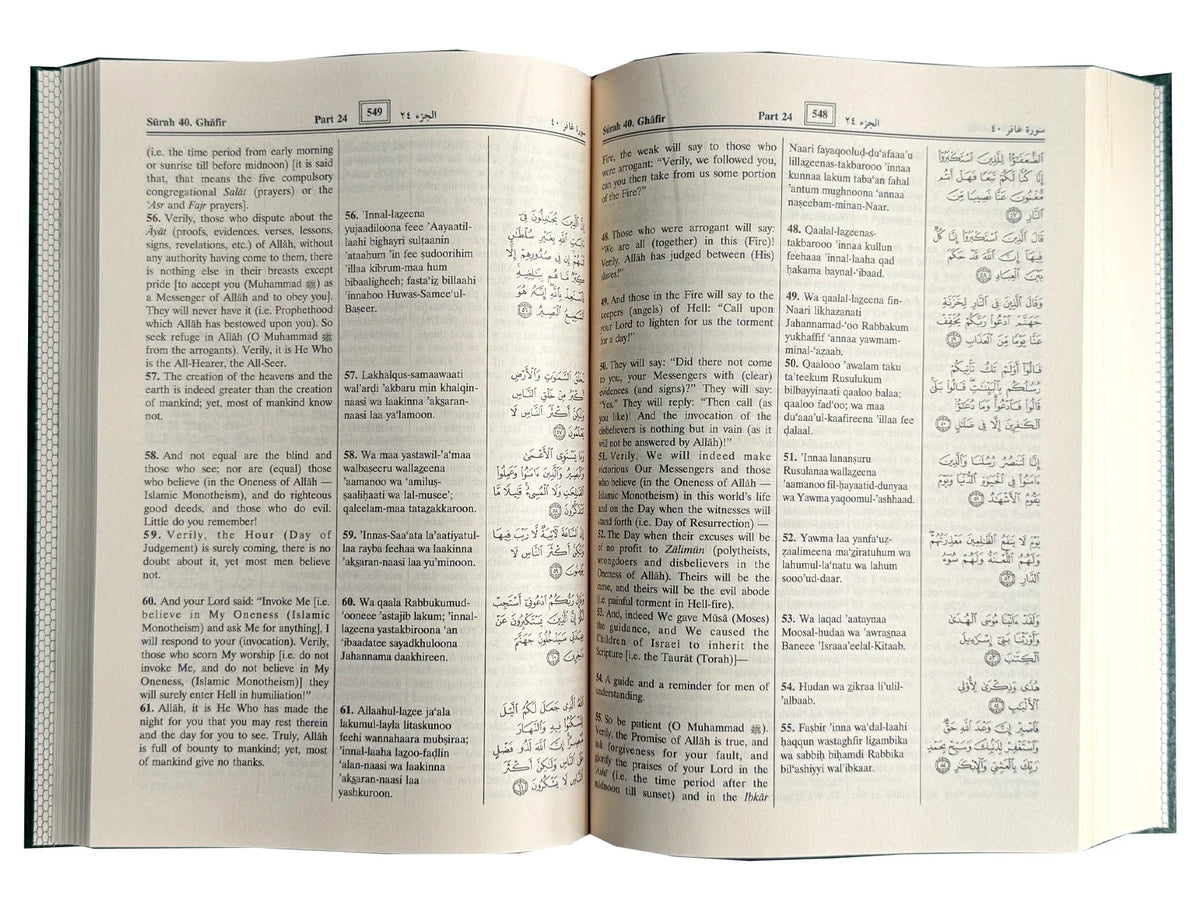 Sûrah 40. Ghâfir
Part 24
548
الجزء ٢٤
سورة غافر ٤٠
Fire, the weak will say to those who
were arrogant: “Verily, we followed you,
can you then take from us some portion
of the Fire?”
48. Those who were arrogant will say:
“We are all (together) in this (Fire)!
Verily, Allâh has judged between (His)
slaves!”
49. And those in the Fire will say to the
keepers (angels) of Hell: “Call upon
your Lord to lighten for us the torment
for a day!”
50. They will say: “Did there not come
to you, your Messengers with (clear)
evidences (and signs)?” They will say:
“Yes.” They will reply: “Then call (as
you like)! And the invocation of the
disbelievers is nothing but in vain (as it
will not be answered by Allâh)!”
51. Verily, We will indeed make
victorious Our Messengers and those
who believe (in the Oneness of Allâh —
Islamic Monotheism) in this world’s life
and on the Day when the witnesses will
stand forth (i.e. Day of Resurrection) —
52. The Day when their excuses will be
of no profit to Zâlimûn (polytheists,
wrongdoers and disbelievers in the
Oneness of Allâh). Theirs will be the
curse, and theirs will be the evil abode
(i.e. painful torment in Hell-fire).
53. And, indeed We gave Mûsâ (Moses)
the guidance, and We caused the
Children of Israel to inherit the
Scripture [i.e. the Taurât (Torah)]—
54. A guide and a reminder for men of
understanding.
55. So be patient (O Muhammad ﷺ).
Verily, the Promise of Allâh is true, and
ask forgiveness for your fault, and
glorify the praises of your Lord in the
‘Ashî (i.e. the time period after the
midnoon till sunset) and in the Ibkâr
Naari fayaqooluḍ-ḍu‘afaaa’u
lillaẕeenas-takbarooo ’innaa
kunnaa lakum taba‘an fahal
’antum mughnoona ‘annaa
naṣeebam-minan-Naar.
48. Qaalal-laẕeenas-
takbarooo ’innaa kullun
feehaaa ’innal-laaha qad
ḥakama baynal-‘ibaad.
49. Wa qaalal-laẕeena fin-
Naari likhazanati
Jahannamad-‘oo Rabbakum
yukhaffif ‘annaa yawmam-
minal-‘aẕaab.
50. Qaalooo ’awalam taku
ta’teekum Rusulukum
bilbayyinaati qaaloo balaa;
qaaloo fad‘oo; wa maa
du‘aaa’ul-kaafireena ’illaa fee
ḍalaal.
51. ’Innaa lananṣuru
Rusulanaa wallaẕeena
’aamanoo fil-ḥayaatid-dunyaa
wa Yawma yaqoomul-’ashhaad.
52. Yawma laa yanfa‘uẓ-
ẓaalimeena ma‘ẕiratuhum wa
lahumul-la‘natu wa lahum
sooo’ud-daar.
53. Wa laqad ’aataynaa
Moosal-hudaa wa ’awrasnaa
Baneee ’Israaa’eelal-Kitaab.
54. Hudan wa ẕikraa li’ulil-
’albaab.
55. Faṣbir ’inna wa‘dal-laahi
ḥaqqun wastaghfir liẕambika
wa sabbiḥ biḥamdi Rabbika
bil‘ashiyyi wal’ibkaar.
ٱلضُّعَفَٰٓؤُا۟ لِلَّذِينَ ٱسْتَكْبَرُوٓا۟
إِنَّا كُنَّا لَكُمْ تَبَعًا فَهَلْ أَنتُم
مُّغْنُونَ عَنَّا نَصِيبًا مِّنَ
ٱلنَّارِ ٤٧
قَالَ ٱلَّذِينَ ٱسْتَكْبَرُوٓا۟ إِنَّا كُلٌّ
فِيهَآ إِنَّ ٱللَّهَ قَدْ حَكَمَ
بَيْنَ ٱلْعِبَادِ ٤٨
وَقَالَ ٱلَّذِينَ فِى ٱلنَّارِ لِخَزَنَةِ
جَهَنَّمَ ٱدْعُوا۟ رَبَّكُمْ يُخَفِّفْ
عَنَّا يَوْمًا مِّنَ ٱلْعَذَابِ ٤٩
قَالُوٓا۟ أَوَلَمْ تَكُ تَأْتِيكُمْ
رُسُلُكُم بِٱلْبَيِّنَٰتِ قَالُوا۟ بَلَىٰ
قَالُوا۟ فَٱدْعُوا۟ وَمَا دُعَٰٓؤُا۟
ٱلْكَٰفِرِينَ إِلَّا فِى ضَلَٰلٍ ٥٠
إِنَّا لَنَنصُرُ رُسُلَنَا وَٱلَّذِينَ
ءَامَنُوا۟ فِى ٱلْحَيَوٰةِ ٱلدُّنْيَا وَيَوْمَ
يَقُومُ ٱلْأَشْهَٰدُ ٥١
يَوْمَ لَا يَنفَعُ ٱلظَّٰلِمِينَ مَعْذِرَتُهُمْ
وَلَهُمُ ٱللَّعْنَةُ وَلَهُمْ سُوٓءُ
ٱلدَّارِ ٥٢
وَلَقَدْ ءَاتَيْنَا مُوسَى ٱلْهُدَىٰ
وَأَوْرَثْنَا بَنِىٓ إِسْرَٰٓءِيلَ
ٱلْكِتَٰبَ ٥٣
هُدًى وَذِكْرَىٰ لِأُو۟لِى
ٱلْأَلْبَٰبِ ٥٤
فَٱصْبِرْ إِنَّ وَعْدَ ٱللَّهِ حَقٌّ
وَٱسْتَغْفِرْ لِذَنۢبِكَ وَسَبِّحْ بِحَمْدِ
رَبِّكَ بِٱلْعَشِىِّ وَٱلْإِبْكَٰرِ ٥٥
Sûrah 40. Ghâfir
Part 24
549
الجزء ٢٤
سورة غافر ٤٠
(i.e. the time period from early morning
or sunrise till before midnoon) [it is said
that, that means the five compulsory
congregational Salât (prayers) or the
‘Asr and Fajr prayers].
56. Verily, those who dispute about the
Âyât (proofs, evidences, verses, lessons,
signs, revelations, etc.) of Allâh, without
any authority having come to them, there
is nothing else in their breasts except
pride [to accept you (Muhammad ﷺ) as
a Messenger of Allâh and to obey you].
They will never have it (i.e. Prophethood
which Allâh has bestowed upon you). So
seek refuge in Allâh (O Muhammad ﷺ
from the arrogants). Verily, it is He Who
is the All-Hearer, the All-Seer.
57. The creation of the heavens and the
earth is indeed greater than the creation
of mankind; yet, most of mankind know
not.
58. And not equal are the blind and
those who see; nor are (equal) those
who believe (in the Oneness of Allâh —
Islamic Monotheism), and do righteous
good deeds, and those who do evil.
Little do you remember!
59. Verily, the Hour (Day of
Judgement) is surely coming, there is no
doubt about it, yet most men believe
not.
60. And your Lord said: “Invoke Me [i.e.
believe in My Oneness (Islamic
Monotheism) and ask Me for anything], I
will respond to your (invocation). Verily,
those who scorn My worship [i.e. do not
invoke Me, and do not believe in My
Oneness, (Islamic Monotheism)] they
will surely enter Hell in humiliation!”
61. Allâh, it is He Who has made the
night for you that you may rest therein
and the day for you to see. Truly, Allâh
is full of bounty to mankind; yet, most
of mankind give no thanks.
56. ’Innal-laẕeena
yujaadiloona feee ’Aayaatil-
laahi bighayri sulṭaanin
’ataahum ’in fee ṣudoorihim
’illaa kibrum-maa hum
bibaaligheeh; fasta‘iẕ billaahi
’innahoo Huwas-Samee‘ul-
Baṣeer.
57. Lakhalqus-samaawaati
wal’arḍi ’akbaru min khalqin-
naasi wa laakinna ’akṣaran-
naasi laa ya‘lamoon.
58. Wa maa yastawil-’a‘maa
walbaṣeeru wallaẕeena
’aamanoo wa ‘amiluṣ-
ṣaaliḥaati wa lal-musee’;
qaleelam-maa tataẕakkaroon.
59. ’Innas-Saa‘ata la’aatiyatul-
laa rayba feehaa wa laakinna
’akṣaran-naasi laa yu’minoon.
60. Wa qaala Rabbukumud-
‘ooneee ’astajib lakum; ’innal-
laẕeena yastakbiroona ‘an
‘ibaadatee sayadkhuloona
Jahannama daakhireen.
61. Allaahul-laẕee ja‘ala
lakumul-layla litaskunoo
feehi wannahaara mubṣiraa;
’innal-laaha laẕoo-faḍlin
‘alan-naasi wa laakinna
’akṣaran-naasi laa
yashkuroon.
إِنَّ ٱلَّذِينَ يُجَٰدِلُونَ فِىٓ
ءَايَٰتِ ٱللَّهِ بِغَيْرِ سُلْطَٰنٍ
أَتَىٰهُمْ إِن فِى صُدُورِهِمْ إِلَّا
كِبْرٌ مَّا هُم بِبَٰلِغِيهِ
فَٱسْتَعِذْ بِٱللَّهِ إِنَّهُۥ هُوَ
ٱلسَّمِيعُ ٱلْبَصِيرُ ٥٦
لَخَلْقُ ٱلسَّمَٰوَٰتِ وَٱلْأَرْضِ
أَكْبَرُ مِنْ خَلْقِ ٱلنَّاسِ
وَلَٰكِنَّ أَكْثَرَ ٱلنَّاسِ لَا
يَعْلَمُونَ ٥٧
وَمَا يَسْتَوِى ٱلْأَعْمَىٰ
وَٱلْبَصِيرُ وَٱلَّذِينَ ءَامَنُوا۟ وَعَمِلُوا۟
ٱلصَّٰلِحَٰتِ وَلَا ٱلْمُسِىٓءُ قَلِيلًا مَّا
تَتَذَكَّرُونَ ٥٨
إِنَّ ٱلسَّاعَةَ لَءَاتِيَةٌ لَّا رَيْبَ فِيهَا
وَلَٰكِنَّ أَكْثَرَ ٱلنَّاسِ لَا
يُؤْمِنُونَ ٥٩
وَقَالَ رَبُّكُمُ ٱدْعُونِىٓ أَسْتَجِبْ
لَكُمْ إِنَّ ٱلَّذِينَ يَسْتَكْبِرُونَ عَنْ
عِبَادَتِى سَيَدْخُلُونَ جَهَنَّمَ
دَاخِرِينَ ٦٠
ٱللَّهُ ٱلَّذِى جَعَلَ لَكُمُ ٱلَّيْلَ
لِتَسْكُنُوا۟ فِيهِ وَٱلنَّهَارَ
مُبْصِرًا إِنَّ ٱللَّهَ لَذُو فَضْلٍ
عَلَى ٱلنَّاسِ وَلَٰكِنَّ أَكْثَرَ
ٱلنَّاسِ لَا يَشْكُرُونَ ٦١